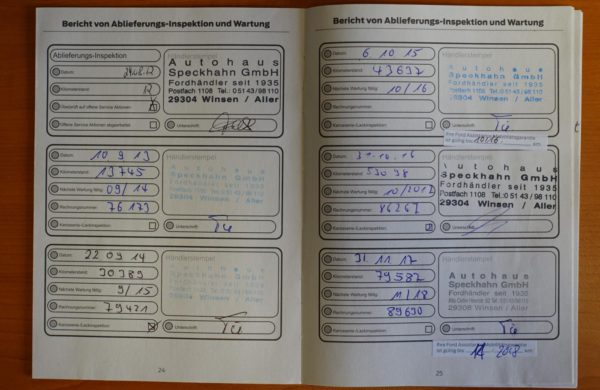 Bericht von Ablieferungs-Inspektion und Wartung
Ablieferungs-Inspektion
Datum:
Kilometerstand: 12
Überprüft auf offene Service Aktionen
Offene Service Aktionen abgearbeitet
Händlerstempel
Autohaus
Speckhahn GmbH
Fordhändler seit 1935
Postfach 1108 Tel.: 0 51 43/98 110
29304 Winsen / Aller
Unterschrift:
Datum: 10 9 13
Kilometerstand: 13745
Nächste Wartung fällig: 09/14
Rechnungsnummer: 76173
Karosserie-/Lackinspektion:
Händlerstempel
Autohaus
Speckhahn GmbH
Fordhändler seit 1935
29304 Winsen / Aller
Unterschrift:
Datum: 22 09 14
Kilometerstand: 30389
Nächste Wartung fällig: 9/15
Rechnungsnummer: 79421
Karosserie-/Lackinspektion:
Händlerstempel
Autohaus
Speckhahn GmbH
Fordhändler seit 1935
29304 Winsen / Aller
Unterschrift:
24
Bericht von Ablieferungs-Inspektion und Wartung
Datum: 6 10 15
Kilometerstand: 43697
Nächste Wartung fällig: 10/16
Rechnungsnummer:
Karosserie-/Lackinspektion:
Händlerstempel
Autohaus
Speckhahn GmbH
Fordhändler seit 1935
29304 Winsen / Aller
Unterschrift:
Ihre Ford Assistance
ist gültig bis: 10/16 km
Datum:
Kilometerstand: 53098
Nächste Wartung fällig:
Rechnungsnummer: 86261
Karosserie-/Lackinspektion:
Autohaus
Speckhahn GmbH
Fordhändler seit 1935
Postfach 1108 Tel.: 0 51 43 / 98 110
29304 Winsen / Aller
Unterschrift:
Datum: 31. 11 17
Kilometerstand: 79587
Nächste Wartung fällig: 11/18
Rechnungsnummer: 89690
Karosserie-/Lackinspektion:
Händlerstempel
Autohaus
Speckhahn GmbH
Fordhändler seit 1935
29308 Winsen / Aller
Unterschrift:
Ihre Ford Assistance
ist gültig bis: 11 2018 km
25